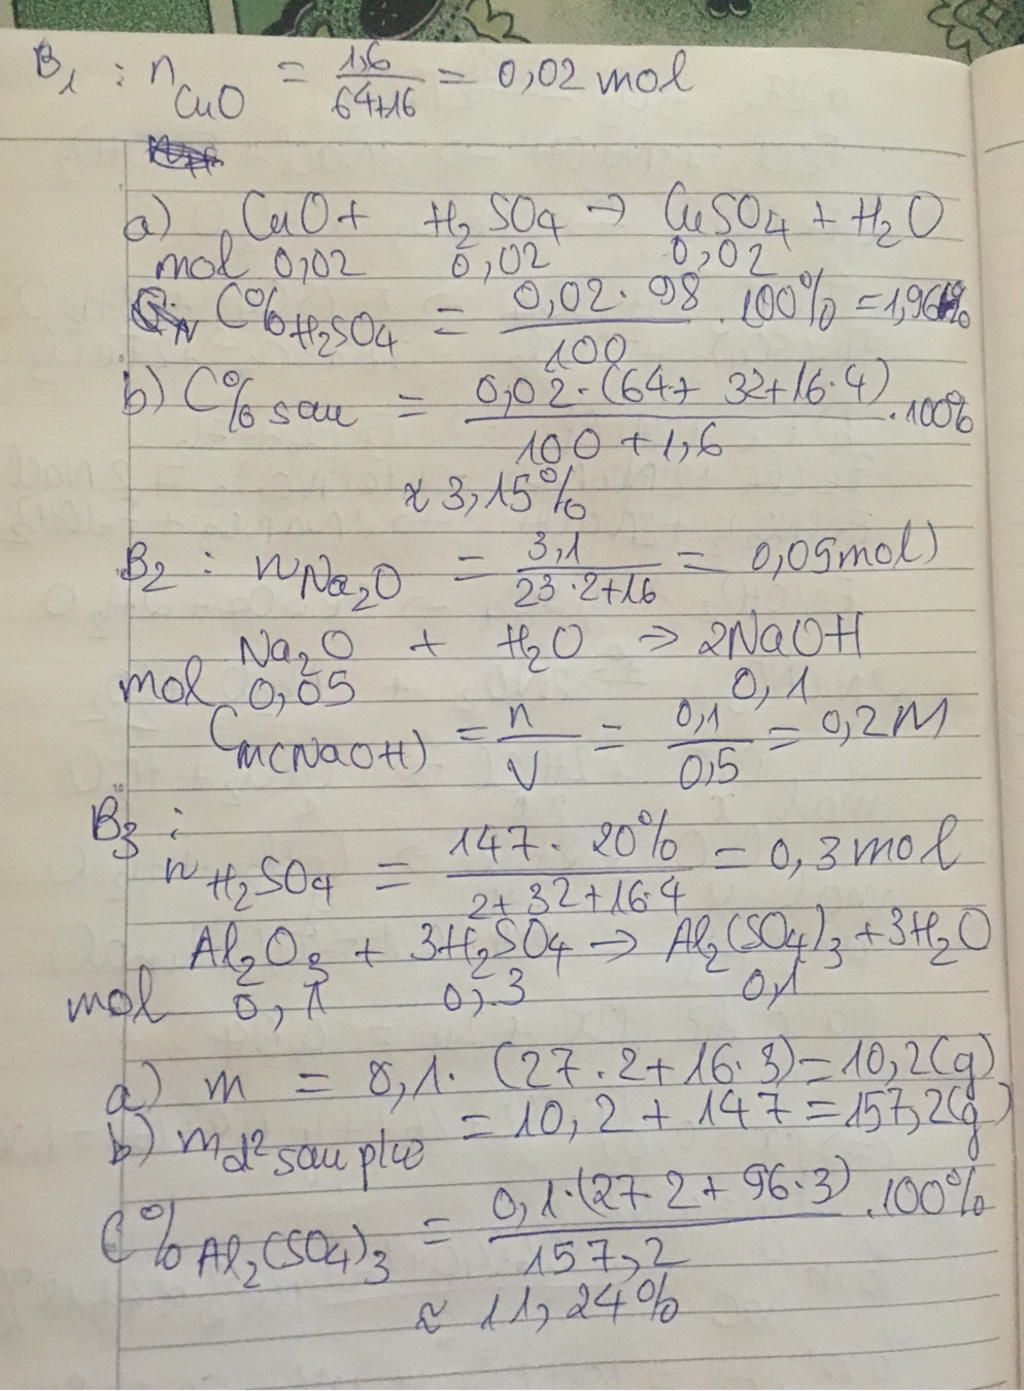 B1 : nCuO = 1,6/64+16 = 0,02 mol
a) CuO + H2SO4 → CuSO4 + H2O
mol 0,02 0,02 0,02
C%H2SO4 = 0,02 . 98/100 . 100% = 1,96%
b) C% sau = 0,02 . (64 + 32 + 16.4)/100 + 1,6 . 100%
≈ 3,15%
B2 : nNa2O = 3,1/23.2+16 = 0,05 mol)
Na2O + H2O → 2NaOH
mol 0,05 0,1
CM(NaOH) = n/V = 0,1/0,5 = 0,2M
B3 :
nH2SO4 = 147 . 20%/2+32+16.4 = 0,3 mol
Al2O3 + 3H2SO4 → Al2(SO4)3 + 3H2O
mol 0,1 0,3 0,1
a) m = 0,1 . (27.2 + 16.3) = 10,2(g)
b) md2 sau pứ = 10,2 + 147 = 157,2(g)
C%Al2(SO4)3 = 0,1.(27.2 + 96.3)/157,2 . 100%
≈ 11,24%